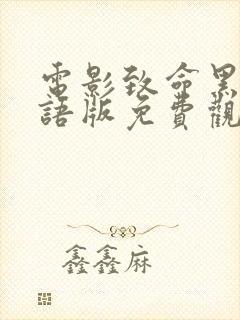 電影致命黑
語版免費觀
鑫鑫麻